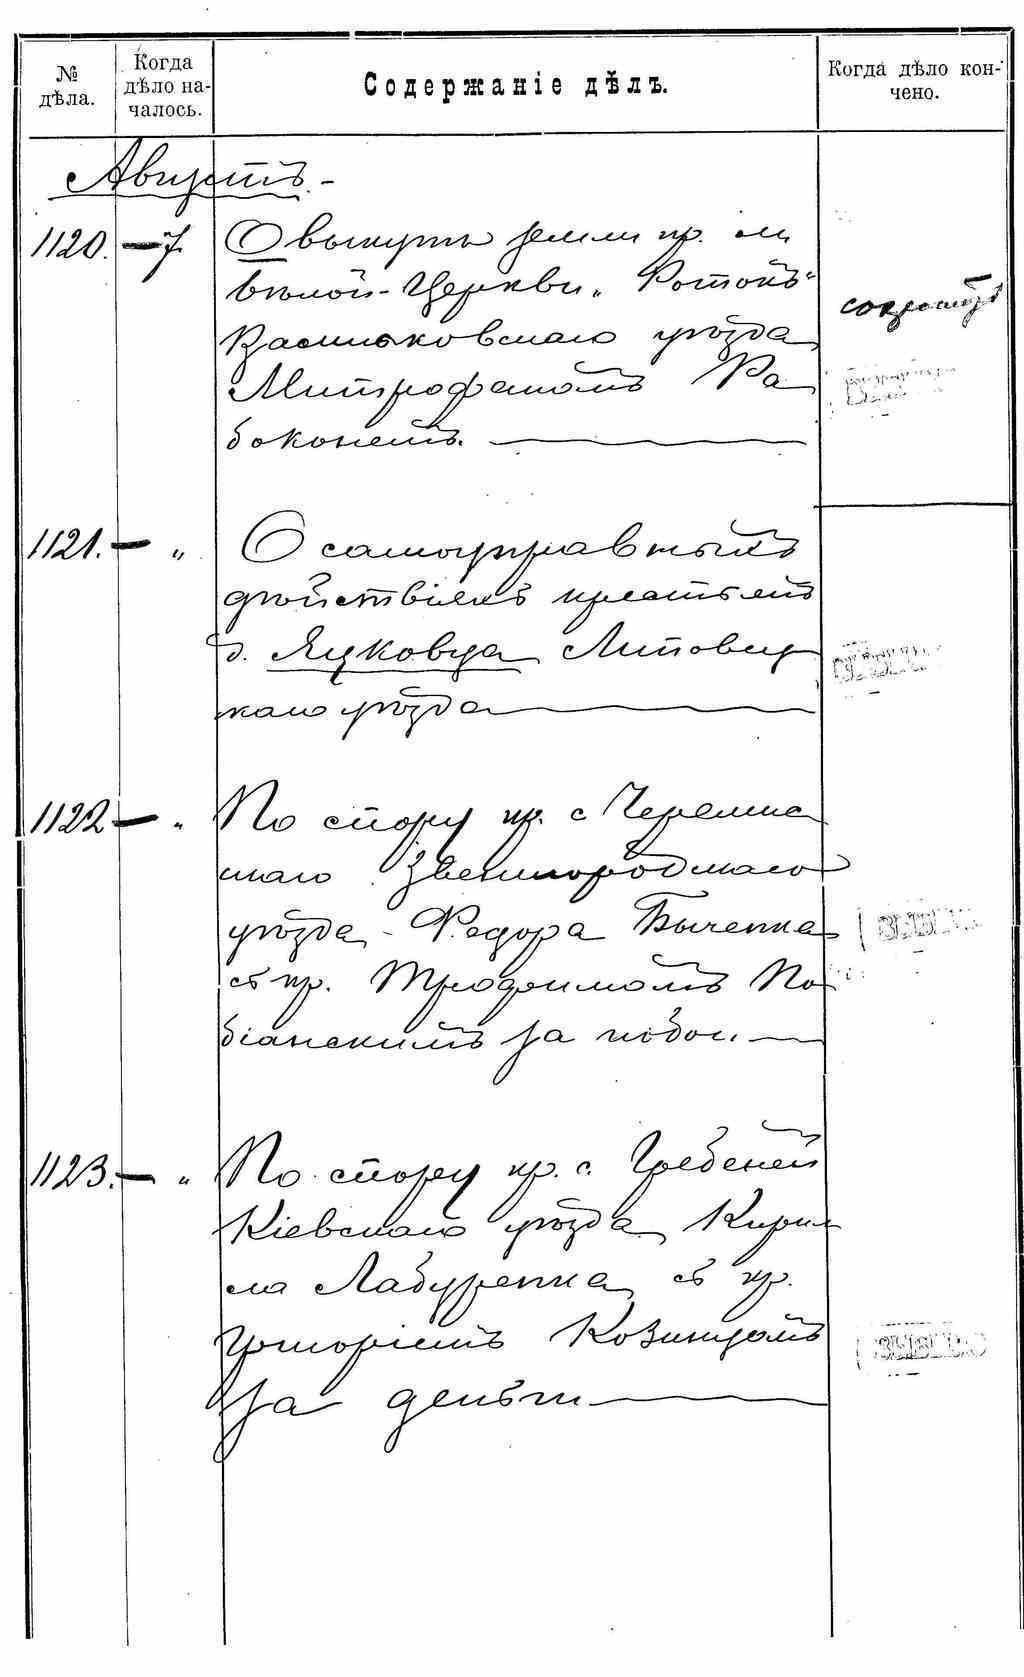 № дѣла.
Когда дѣло на-
чалось.
Содержаніе дѣлъ.
Когда дѣло кон-
чено.
Августъ.-
1120. — 7. О выкупѣ земли кр. м.
Бѣлой-Церкви „Ротокъ“
Васильковскаго уѣзда
Митрофаномъ Ра
боконемъ.
1121. — „ О самоуправныхъ
дѣйствіяхъ крестьянъ
д. Яцковца Липовец
каго уѣзда
1122 — „ По спору кр. с Черемис
скаго Звенигородскаго
уѣзда - Федора Быченка
съ кр. Трофимомъ По
біанскимъ за побои.
1123. — „ По спору кр. с. Гребеней
Кіевскаго уѣзда Кири
ла Лабуренка съ кр.
Григоріемъ Козинцомъ
за деньги